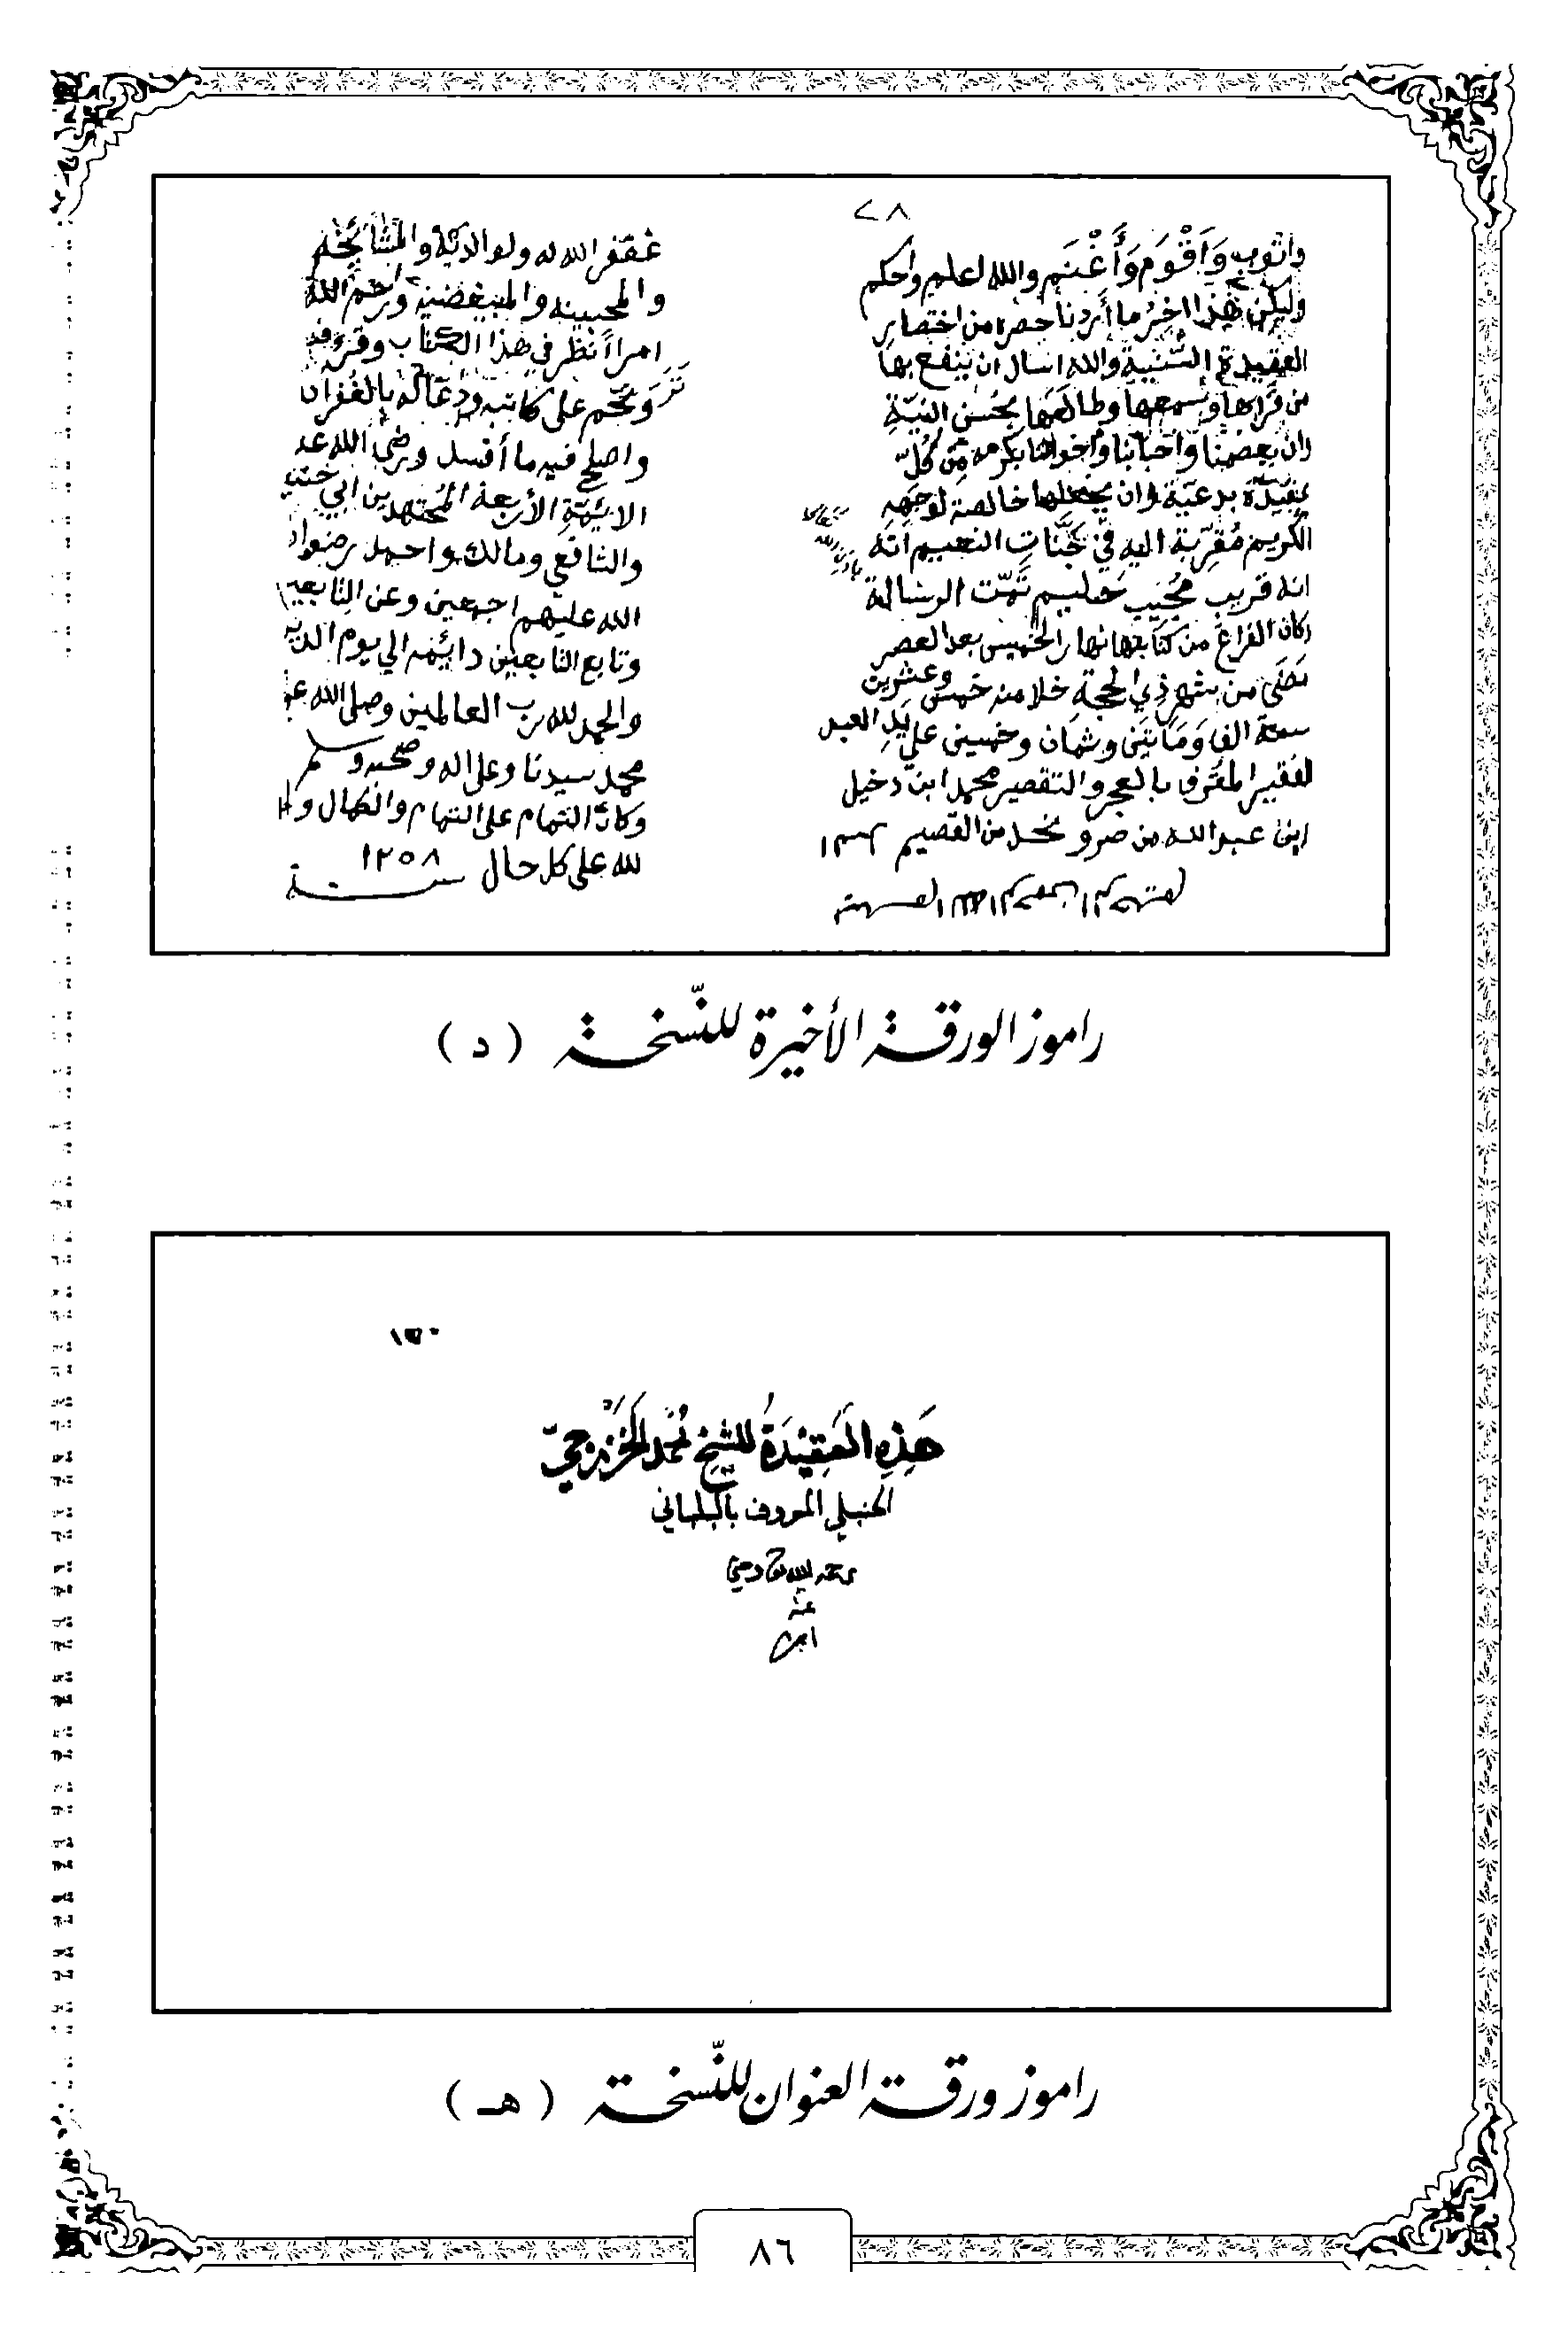 ٢٨
واثوب وَأَقْوَم وَأَغْنَم والله اعلم واحكم
وليكن هذا اخِرُ ما أردنا حصره من اختصار
العقيدة السُّنيّة والله اسال ان ينفع بها
من قراها وسمعها وطالعها بحُسن النيّة
وان يعصمنا واحبابنا واخواننا بكرمه مِن كُلّ
عقيدَة بدعيّة وان يجعلها خالصة لوجهه
الكريم مُقرّبة اليه في جَنّات النعيم انّه
انه قريب مجُيب حَليم تمّت الرسالة
وكان الفراغ من كتابتها نهار الخميس بعد العصر
مضَى من شهر ذي الحجة خلا منه خمس وعشرين
سنة الف ومَائتين وثمان وخمسين علي يَدِ العبد
الفقير المقرف بالعجز والتقصير محمد ابن دخيل
ابن عبد الله من القصيم
غفر الله له ولوالديه والمشائخه
والمحبينه والمبغضينه ورحم الله
امراً نظر في هذا الكتاب
وترحّم على كاتبه ودعا له بالغُفران
واصلح فيه ما أفسد ورضي الله عن
الائمّةِ الأربعة المُجتهدين ابي حنيفة
والشافعي ومالك واحمد رضوان
الله عليهم اجمعين وعن التابعين
وتابع التابعين دائمه الي يوم الدين
والحمد لله رب العالمين وصلى الله على
محمد سيدنا وعلى اله وصحبه وسلم
وكان التمام على التمام والكمال
لله على كل حال ١٢٥٨
سنة
راموز الورقة الأخيرة للنّسخة (د)
١٣٠
هَذِهِ العَقِيْدَةُ للشيخ محُمّد الخَزْرَجيّ
الحنبلي المعروف بالبلباني
رحمه الله
عنه
امين
راموز ورقة العنوان للنّسخة (هـ)
٨٦